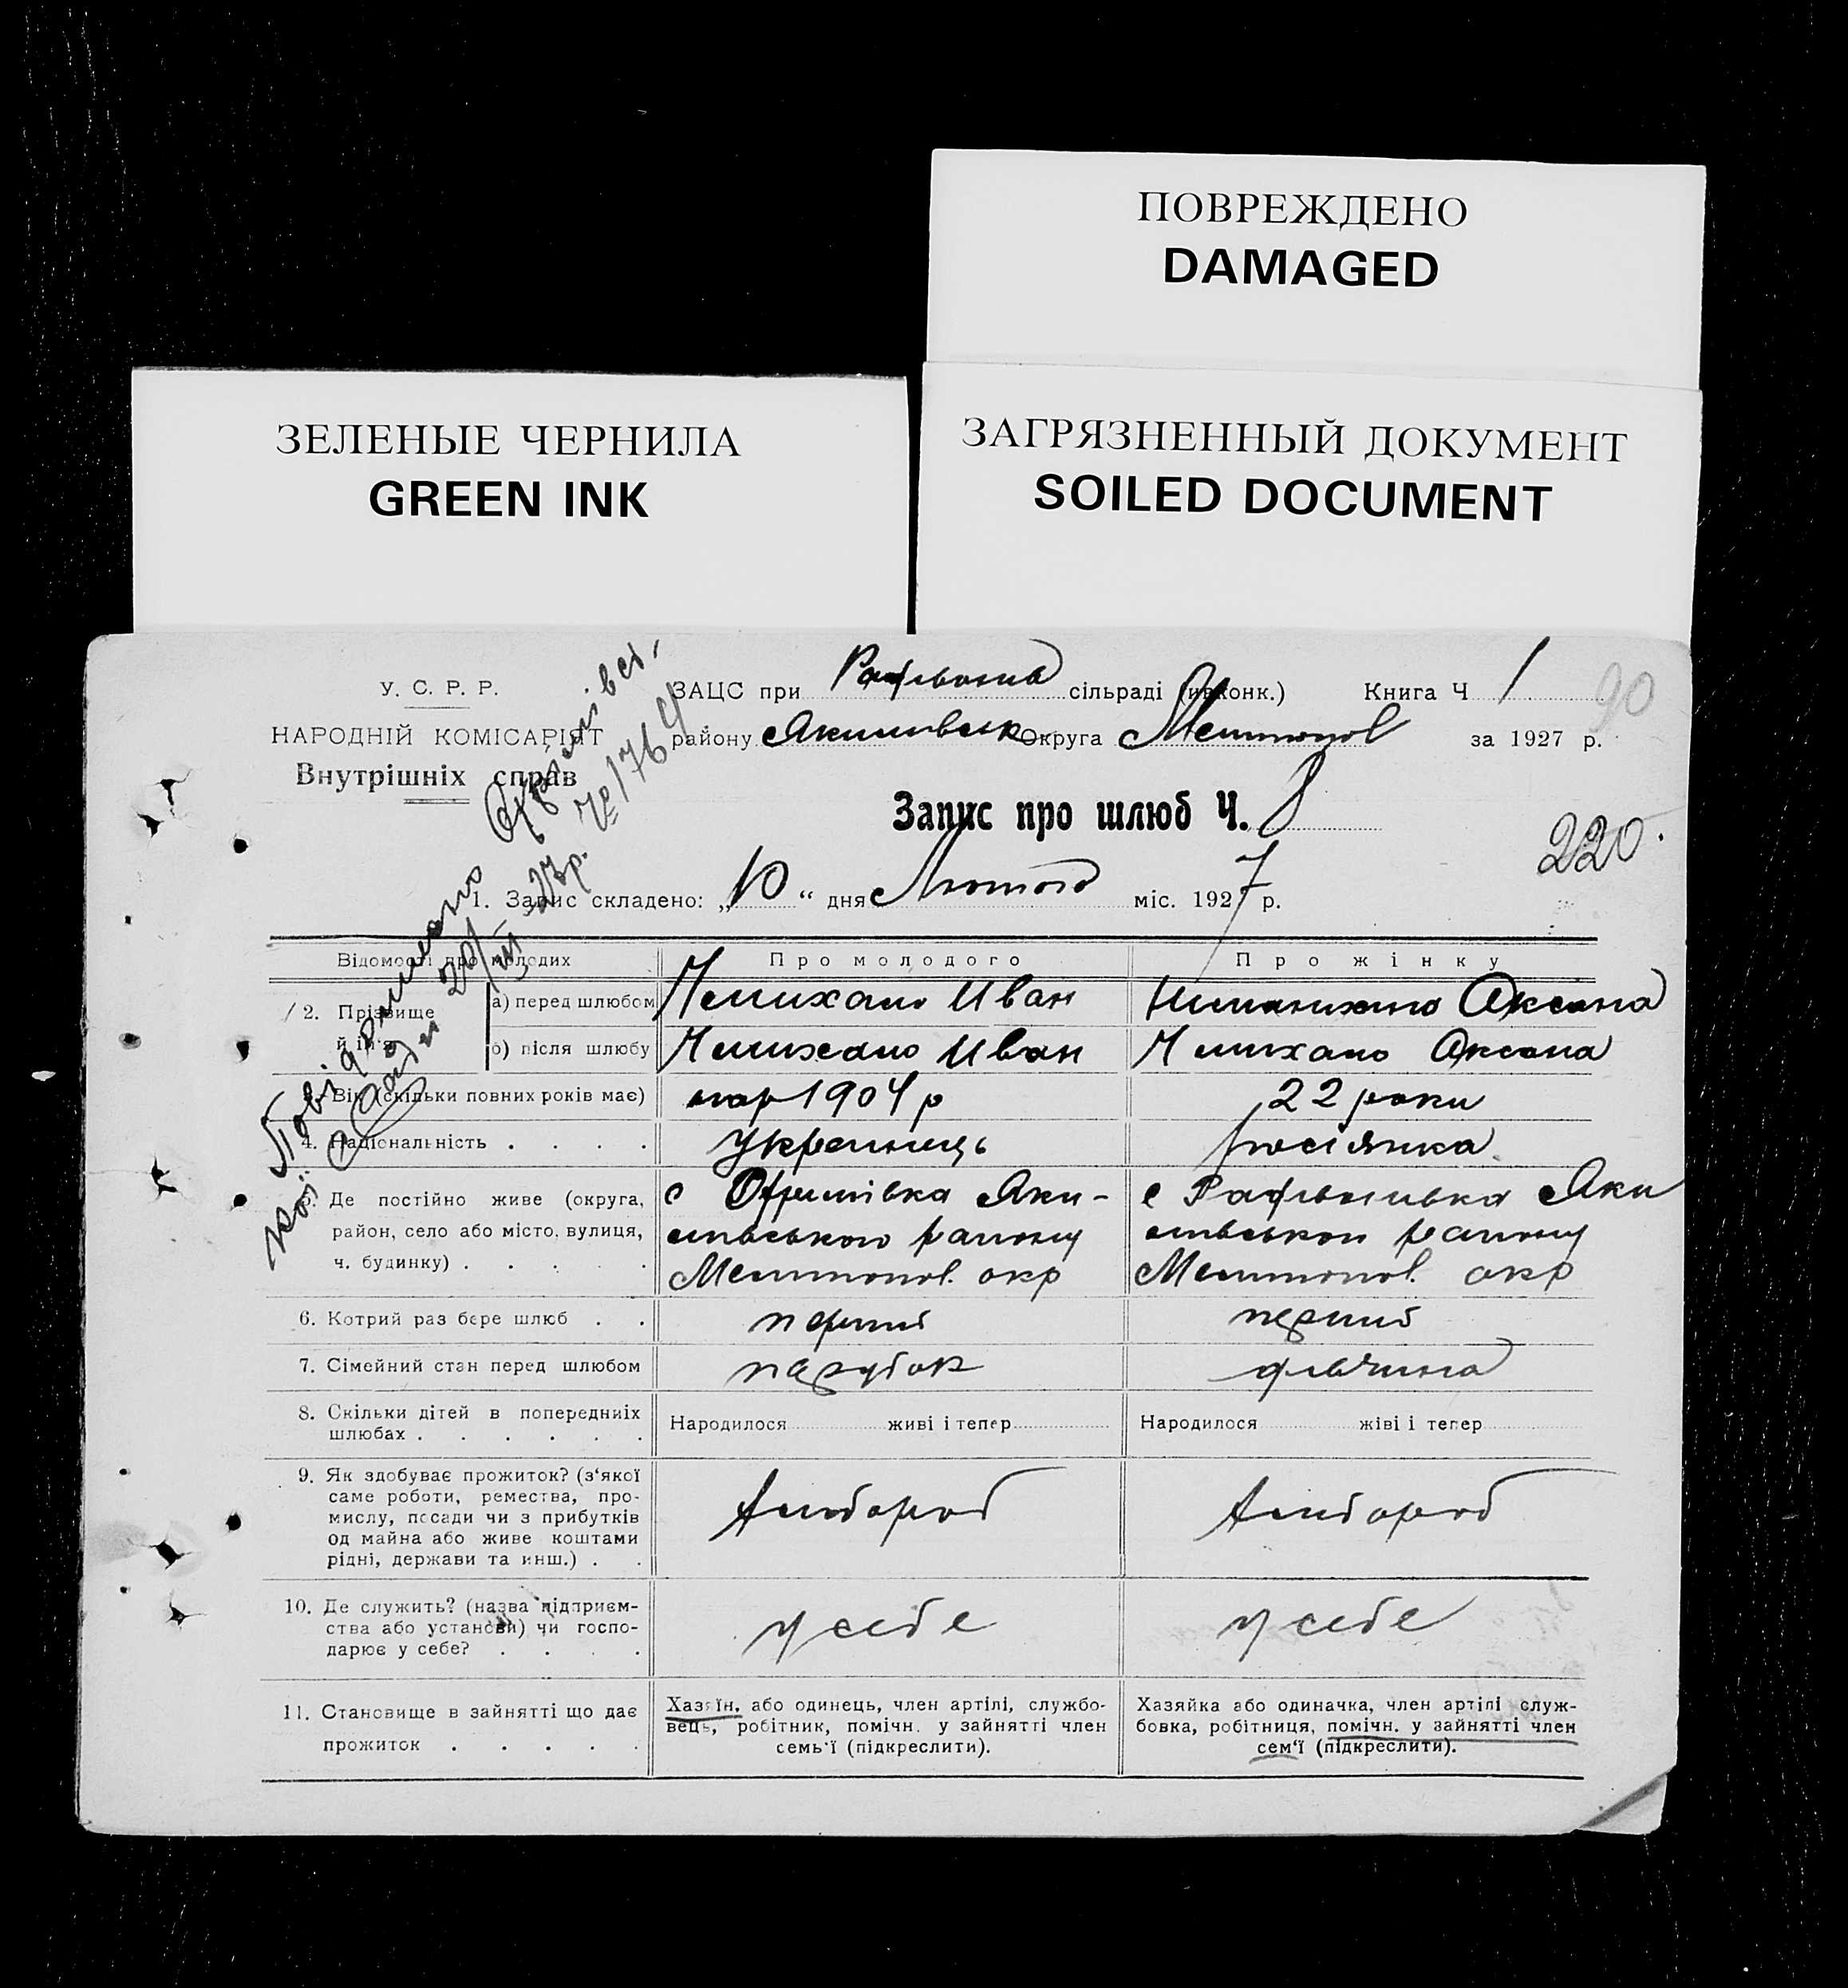 ПОВРЕЖДЕНО
DAMAGED
ЗЕЛЕНЫЕ ЧЕРНИЛА
GREEN INK
ЗАГРЯЗНЕННЫЙ ДОКУМЕНТ
SOILED DOCUMENT
У. С. Р. Р.
НАРОДНІЙ КОМІСАРІЯТ
Внутрішніх справ
ЗАЦС при сільраді (иконк.) Книга Ч 1
90
району Якимівськ Округа Мелитопол за 1927 р.
Запис про шлюб Ч. 8
220.
1. Запис складено: „10“ дня Лютого міс. 1927 р.
Відомості про молодих
Про молодого
Про жінку
2. Прізвище й ім'я
а) перед шлюбом
Иван
Аксана
б) після шлюбу
Иван
Аксана
3. Вік (скільки повних років має)
1904 р
22 роки
4. Національність . . . .
Українець
росіянка
5. Де постійно живе (округа,
район, село або місто, вулиця,
ч. будинку) . . . . .
с Охримівка Яки-
мівської району
Мелитопол. окр
с Яки
мівської району
Мелитопол. окр
6. Котрий раз бере шлюб . .
перший
перший
7. Сімейний стан перед шлюбом
парубок
дівчина
8. Скільки дітей в попередниіх
шлюбах . . . . . .
Народилося живі і тепер
Народилося жіві і тепер
9. Як здобуває прожиток? (з‘якої
саме роботи, ремества, про-
мислу, посади чи з прибутків
од майна або живе коштами
рідні, держави та инш.) . .
хлібороб
хлібороб
10. Де служить? (назва підприєм-
ства або установи) чи госпо-
дарює у себе? . . . .
у себе
у себе
11. Становище в зайнятті що дає
прожиток . . . . .
Хазяїн, або одинець, член артілі, службо-
вець, робітник, помічн. у зайнятті член
семь‘ї (підкреслити).
Хазяйка або одиначка, член артілі служ-
бовка, робітниця, помічн. у зайнятті член
сем‘ї (підкреслити).